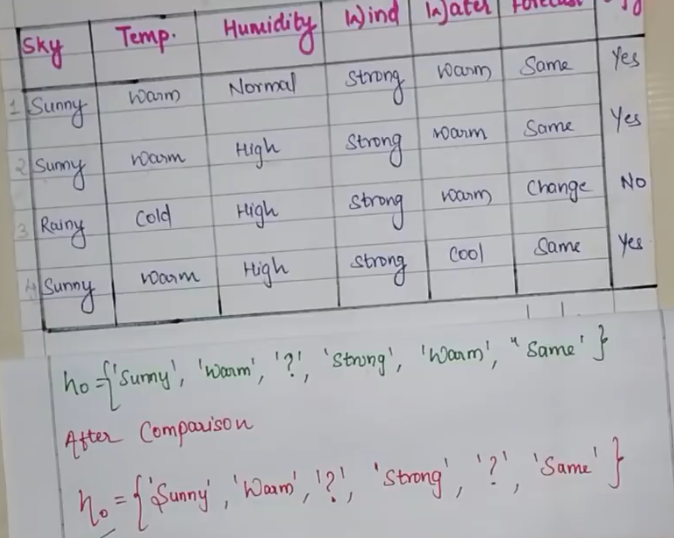 Sky Temp. Humidity Wind Water Forecast
1 Sunny Warm Normal Strong Warm Same Yes
2 Sunny Warm High Strong Warm Same Yes
3 Rainy Cold High Strong Warm Change No
4 Sunny Warm High Strong Cool Same Yes
h0 = {'Sunny', 'Warm', '?', 'Strong', 'Warm', "Same' }
After Comparison
h0 = { 'Sunny', 'Warm', '?', 'Strong', '?', 'Same' }